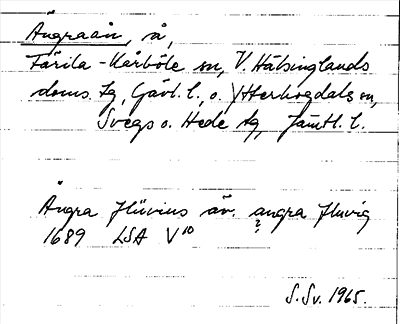 Ängraån, å,
Färila-Kårböle sn, V. Hälsinglands
doms. tg, Gävl. l., o. Ytterhogdals sn,
Svegs o. Hede tg, Jämtl. l.
Ängra flüvius äv. angra fluvig
?
1689 LSA V¹⁰
S. Sv. 1965.